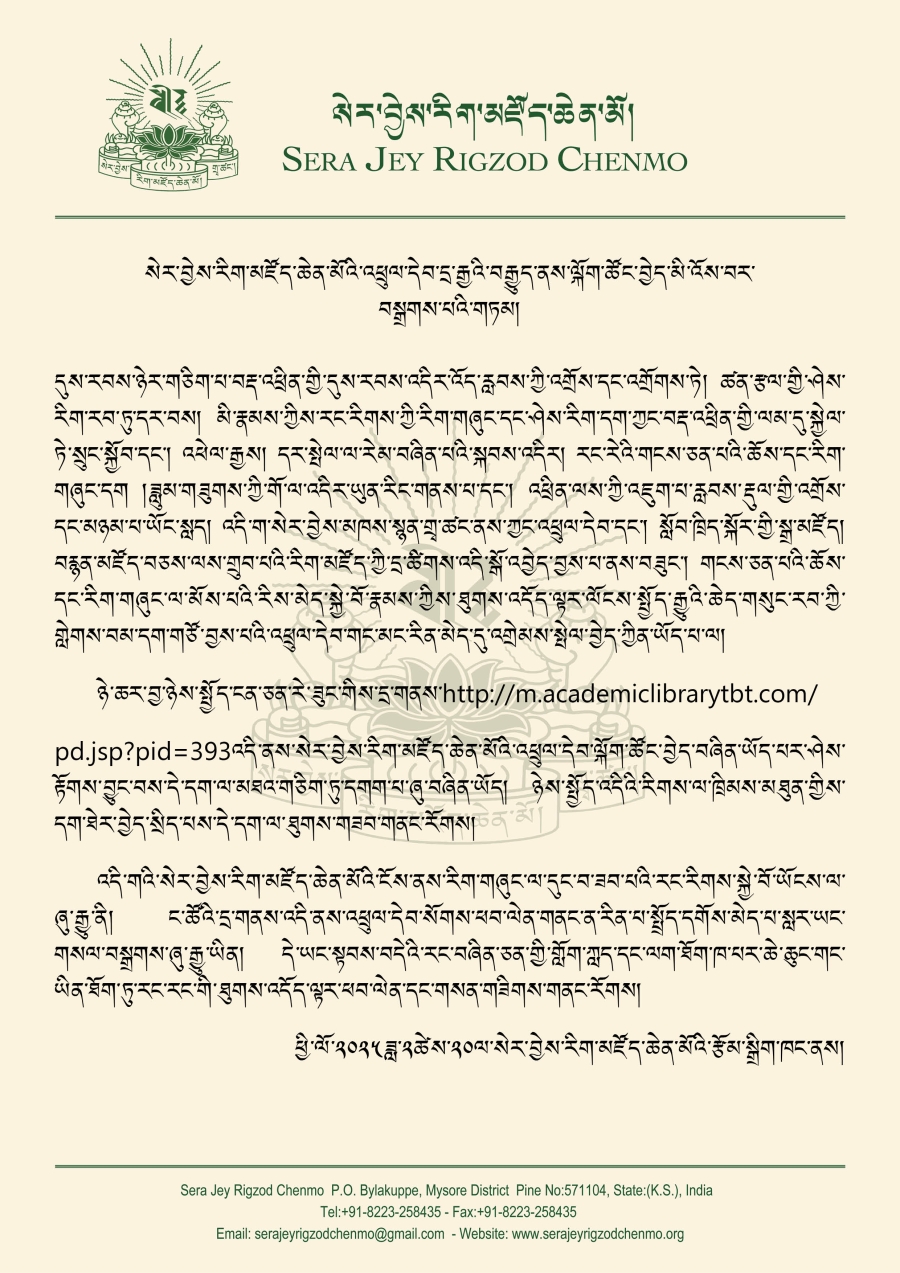 སེར་བྱེས་རིག་མཛོད་ཆེན་མོ།
SERA JEY RIGZOD CHENMO
སེར་བྱེས་
རིག་མཛོད་ཆེན་མོ།
གྲྭ་ཚང་།
སེར་བྱེས་རིག་མཛོད་ཆེན་མོའི་འཕྲུལ་དེབ་དྲ་རྒྱའི་བརྒྱུད་ནས་ལྐོག་ཚོང་བྱེད་མི་འོས་བར་
བསྒྲགས་པའི་གཏམ།
དུས་རབས་ཉེར་གཅིག་པ་བརྡ་འཕྲིན་གྱི་དུས་རབས་འདིར་འོད་རླབས་ཀྱི་འགྲོས་དང་འགྲོགས་ཏེ། ཚན་རྩལ་གྱི་ཤེས་
རིག་རབ་ཏུ་དར་བས། མི་རྣམས་ཀྱིས་རང་རིགས་ཀྱི་རིག་གཞུང་དང་ཤེས་རིག་དག་ཀྱང་བརྡ་འཕྲིན་གྱི་ལམ་དུ་སྐྱེལ་
ཏེ་སྲུང་སྐྱོབ་དང་། འཕེལ་རྒྱས། དར་སྤེལ་ལ་རེམ་བཞིན་པའི་སྐབས་འདིར། རང་རེའི་གངས་ཅན་པའི་ཆོས་དང་རིག་
གཞུང་དག །ཟླུམ་གཟུགས་ཀྱི་གོ་ལ་འདིར་ཡུན་རིང་གནས་པ་དང་། འཕྲིན་ལས་ཀྱི་འཇུག་པ་རླབས་རྡུལ་གྱི་འགྲོས་
དང་མཉམ་པ་ཡོང་སླད། འདི་ག་སེར་བྱེས་མཁས་སྙན་གྲྭ་ཚང་ནས་ཀྱང་འཕྲུལ་དེབ་དང་། སློབ་ཁྲིད་སྐོར་གྱི་སྒྲ་མཛོད།
བརྙན་མཛོད་བཅས་ལས་གྲུབ་པའི་རིག་མཛོད་ཀྱི་དྲ་ཚིགས་འདི་སྒོ་འབྱེད་བྱས་པ་ནས་བཟུང་། གངས་ཅན་པའི་ཆོས་
དང་རིག་གཞུང་ལ་མོས་པའི་རིས་མེད་སྐྱེ་བོ་རྣམས་ཀྱིས་ཐུགས་འདོད་ལྟར་ལོངས་སྤྱོད་རྒྱུའི་ཆེད་གསུང་རབ་ཀྱི་
གླེགས་བམ་དག་གཙོ་བྱས་པའི་འཕྲུལ་དེབ་གང་མང་རིན་མེད་དུ་འགྲེམས་སྤེལ་བྱེད་ཀྱིན་ཡོད་པ་ལ།
ཉེ་ཆར་བྱ་ཉེས་སྤྱོད་ངན་ཅན་རེ་ཟུང་གིས་དྲ་གནས་http://m.academiclibrarytbt.com/
pd.jsp?pid=393འདི་ནས་སེར་བྱེས་རིག་མཛོད་ཆེན་མོའི་འཕྲུལ་དེབ་ལྐོག་ཚོང་བྱེད་བཞིན་ཡོད་པར་ཤེས་
རྟོགས་བྱུང་བས་དེ་དག་ལ་མཐའ་གཅིག་ཏུ་དགག་པ་ཞུ་བཞིན་ཡོད། ཉེས་སྤྱོད་འདིའི་རིགས་ལ་ཁྲིམས་མཐུན་གྱིས་
དག་ཐེར་བྱེད་སྲིད་པས་དེ་དག་ལ་ཐུགས་གཟབ་གནང་རོགས།
འདི་གའི་སེར་བྱེས་རིག་མཛོད་ཆེན་མོའི་ངོས་ནས་རིག་གཞུང་ལ་དུང་བ་ཟབ་པའི་རང་རིགས་སྐྱེ་བོ་ཡོངས་ལ་
ཞུ་རྒྱུ་ནི། ང་ཚོའི་དྲ་གནས་འདི་ནས་འཕྲུལ་དེབ་སོགས་ཕབ་ལེན་གནང་ན་རིན་པ་སྤྲོད་དགོས་མེད་པ་སླར་ཡང་
གསལ་བསྒྲགས་ཞུ་རྒྱུ་ཡིན། དེ་ཡང་སྟབས་བདེའི་རང་བཞིན་ཅན་གྱི་གློག་ཀླད་དང་ལག་ཐོག་ཁ་པར་ཆེ་ཆུང་གང་
ཡིན་ཐོག་ཏུ་རང་རང་གི་ཐུགས་འདོད་ལྟར་ཕབ་ལེན་དང་གསན་གཟིགས་གནང་རོགས།
ཕྱི་ལོ་༢༠༢༥ཟླ་༢ཚེས་༢༠ལ་སེར་བྱེས་རིག་མཛོད་ཆེན་མོའི་རྩོམ་སྒྲིག་ཁང་ནས།
Sera Jey Rigzod Chenmo P.O. Bylakuppe, Mysore District Pine No:571104, State:(K.S.), India
Tel:+91-8223-258435 - Fax:+91-8223-258435
Email: serajeyrigzodchenmo@gmail.com - Website: www.serajeyrigzodchenmo.org